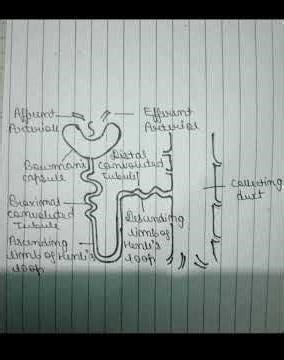 Afferent
Arteriole
Efferent
Arteriol
Bowman's
capsule
Distal
convoluted
Tubule
Proximal
convoluted
Tubule
collecting
duct
Ascending
limb of Henle's
loop
Descending
limb of
Henle's
loop